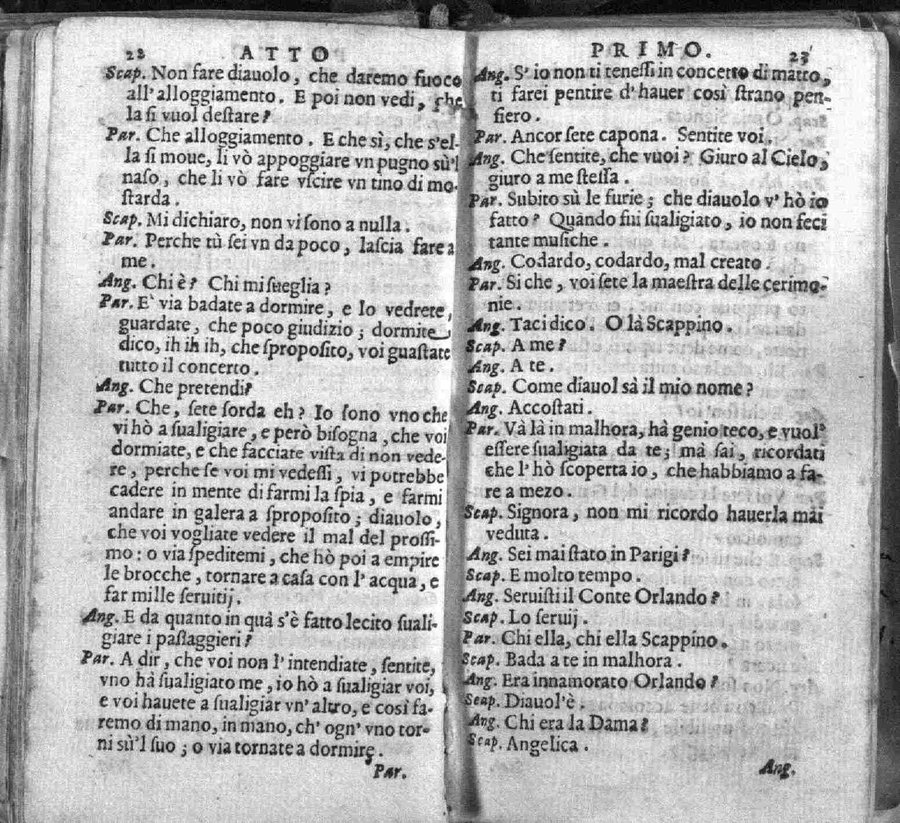 22 ATTO
Scap. Non fare diauolo, che daremo fuoco
all'alloggiamento. E poi non vedi, che
la si vuol destare?
Par. Che alloggiamento. E che sì, che s'el-
la si moue, li vò appoggiare vn pugno sù'l
naso, che li vò fare vscire vn tino di mo-
starda.
Scap. Mi dichiaro, non vi sono a nulla.
Par. Perche tù sei vn da poco, lascia fare a
me.
Ang. Chi è? Chi mi sueglia?
Par. E' via badate a dormire, e lo vedrete,
guardate, che poco giudizio; dormite
dico, ih ih ih, che sproposito, voi guastate
tutto il concerto.
Ang. Che pretendi?
Par. Che, sete sorda eh? Io sono vno che
vi hò a sualigiare, e però bisogna, che voi
dormiate, e che facciate vista di non vede-
re, perche se voi mi vedessi, vi potrebbe
cadere in mente di farmi la spia, e farmi
andare in galera a sproposito; diauolo,
che voi vogliate vedere il mal del prossi-
mo: o via speditemi, che hò poi a empire
le brocche, tornare a casa con l'acqua, e
far mille seruitij.
Ang. E da quanto in quà s'è fatto lecito suali-
giare i passaggieri?
Par. A dir, che voi non l'intendiate, sentite,
vno hà sualigiato me, io hò a sualigiar voi,
e voi hauete a sualigiar vn'altro, e così fa-
remo di mano, in mano, ch'ogn'vno tor-
ni sù'l suo; o via tornate a dormire.
Par.
PRIMO. 23
Ang. S'io non ti tenessi in concetto di matto,
ti farei pentire d'hauer così strano pen-
siero.
Par. Ancor sete capona. Sentite voi.
Ang. Che sentite, che vuoi? Giuro al Cielo,
giuro a me stessa.
Par. Subito sù le furie; che diauolo v'hò io
fatto? Quando fui sualigiato, io non feci
tante musiche.
Ang. Codardo, codardo, mal creato.
Par. Si che, voi sete la maestra delle cerimo-
nie.
Ang. Taci dico. O là Scappino.
Scap. A me?
Ang. A te.
Scap. Come diauol sà il mio nome?
Ang. Accostati.
Par. Và là in malhora, hà genio teco, e vuol'
essere sualigiata da te; mà sai, ricordati
che l'hò scoperta io, che habbiamo a fa-
re a mezo.
Scap. Signora, non mi ricordo hauerla mai
veduta.
Ang. Sei mai stato in Parigi?
Scap. E molto tempo.
Ang. Seruisti il Conte Orlando?
Scap. Lo seruij.
Par. Chi ella, chi ella Scappino.
Scap. Bada a te in malhora.
Ang. Era innamorato Orlando?
Scap. Diauol'è.
Ang. Chi era la Dama?
Scap. Angelica.
Ang.